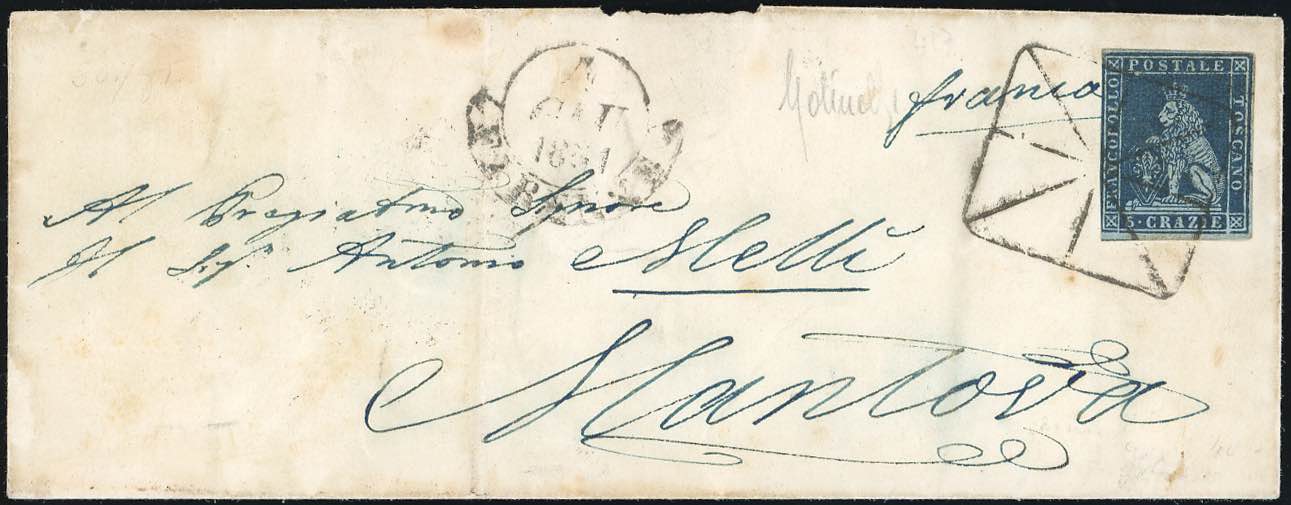 franca
POSTALE
FRANCOBOLLO
TOSCANO
5·CRAZIE
4
GIU
1851
Al Pregiatmo Signore
Il Sigr Antonio Melli
Mantova